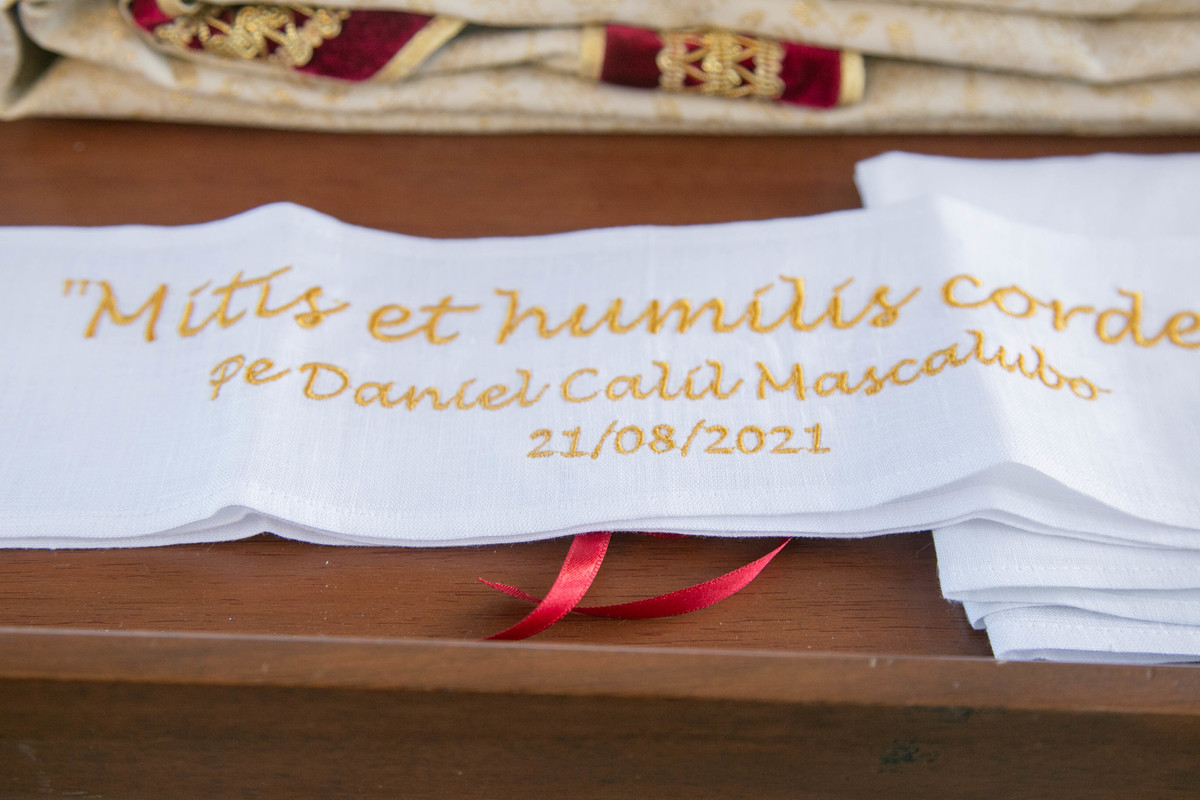 "Mitis et humilis corde
Pe Daniel Calil Mascalubo
21/08/2021